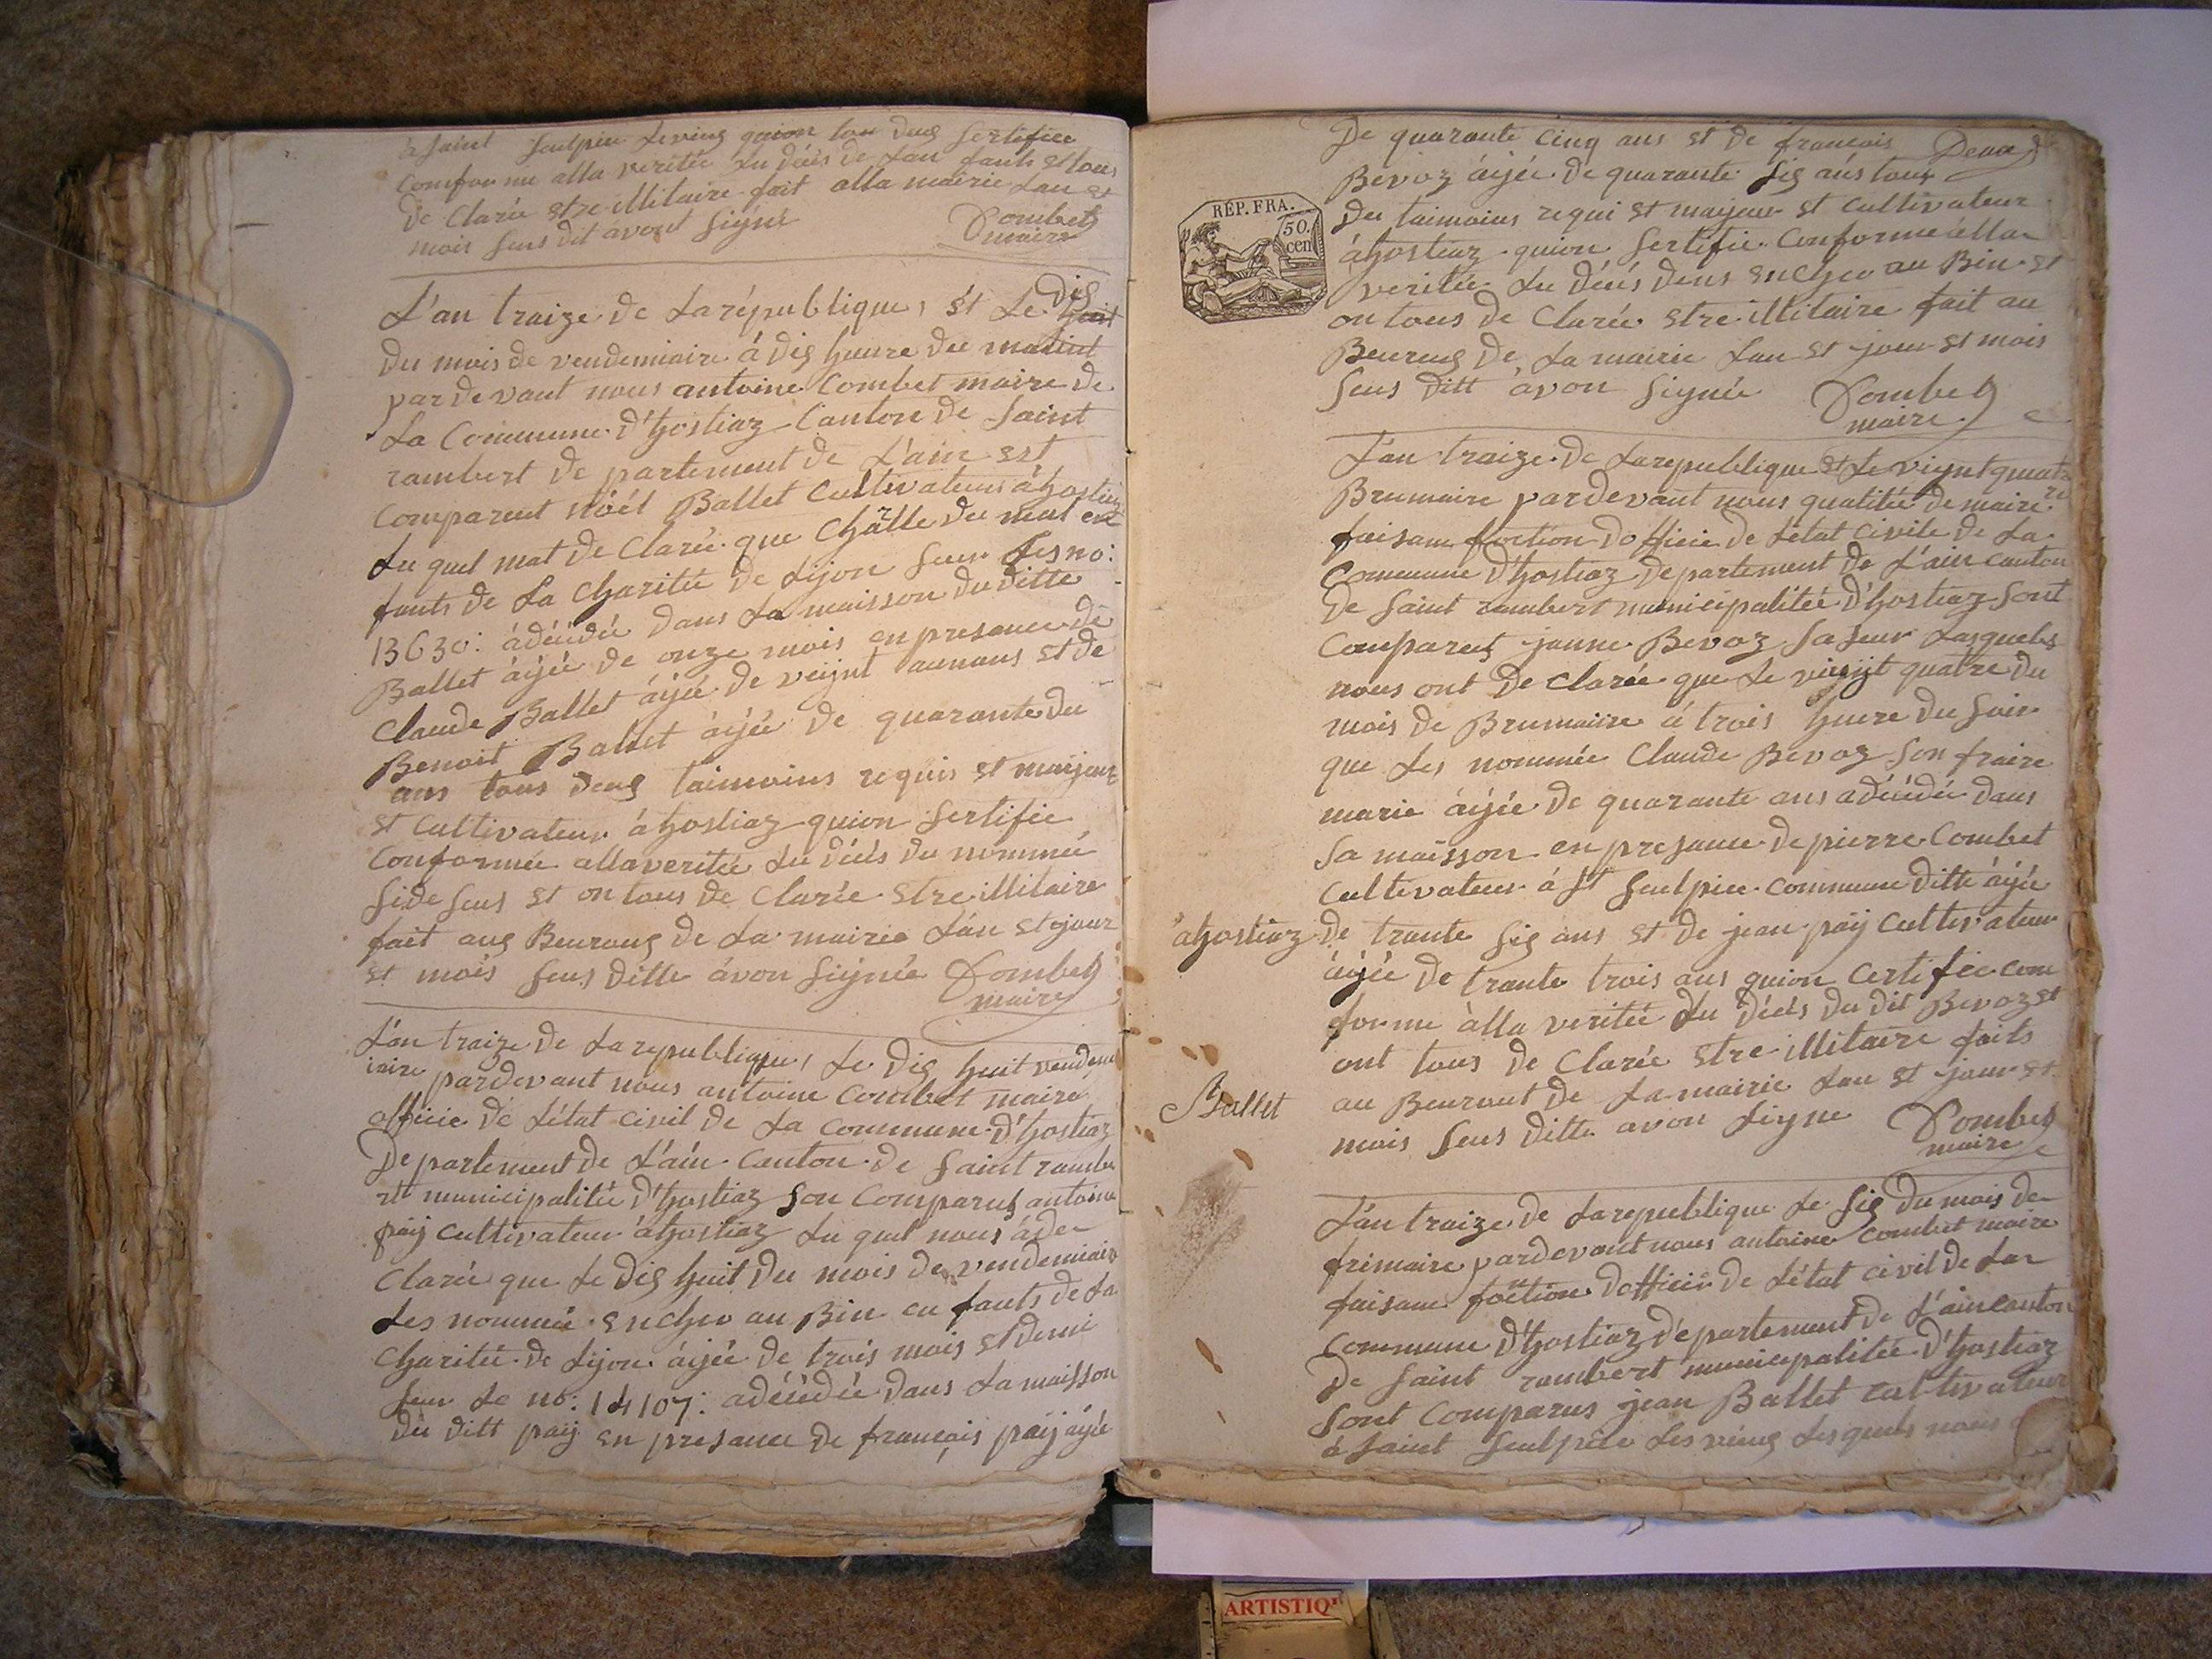 à saint sculpice le vieux quion tou deux sertifiee
comforme alla veritée du déés de lan fants et tous
de clarée etre illitaire fait alla mairie lan et
mois sens dit avont signé Combet
maire
L'an traize de la république, et le dix
du mois de vendemiaire à dix heure du matint
par devant nous antoine Combet maire de
La Commune d'hostiaz Canton de saint
rambert de partement de L'ain est
Comparent noël Ballet Cultivateur à hostiaz
Lu quel mat de Clarée que Chârle du mat en
fants de La Charitée de Lijon seur Les no:
13630: à décédée dans La maisson du ditte
Ballet àijée de onze mois en presance de
Claude Ballet àijée de veijnt aunans et de
Benoit Ballet àijée de quarante du
ans tous deux taimoins requis et maijeur
et Cultivateur à hostiaz quion sertifiee
Conformée alla veritée du déés du nommée
side sens et on tous de Clarée etre illitaire
fait aux Beuraux de La mairie L'an et jour
et mois sens ditte àvon signée Combet
maire
L'an traize de La republique, Le dix huit vendem
iaire pardevant nous antoine Combet maire
officie de L'état civil de La Commune d'hostiaz
Departement de L'ain Canton de saint rambe
rt municipalitée d'hostiaz son Comparus antoine
païj Cultivateur à hostiaz Lu quel nous à de
Clarée que Le dix huit du mois de vendemiaire
Les nommée encher au Bin en fants de La
Charitée de Lijon àijée de trois mois et demi
seur Le no: 14107: à décédée dans La maisson
du ditt païj en presance de francois païj àijée
De quarante cinq ans et de francois Deux
Bevoz àijée de quarante six ans tous
RÉP. FRA.
50.
cen
Du taimoins requi et maijeur et Cultivateur
à hostiaz quion sertifie Conforme àlla
veritée du déés dens encher au Bin et
on tous de Clarée etre illitaire fait au
Beureux de La mairie Lan et jour et mois
sens ditt àvon signée Combet
maire
L'an traize de La republique et Le vignt quat
re
Brumaire pardevant nous qualitée de maire
faisant fonction d officie de L'état Civile de La
Commune d'hostiaz departement de L'ain canton
De saint rambert municipalitée d'hostiaz sont
Comparus janne Bevoz sa seur Lasquels
nous ont de Clarée que Le vieijt quatre du
mois de Brumaiire à trois heure du soir
que Les nommée Claude Bevoz son fraire
marie àijée de quarante ans à décédée dans
sa maïsson en presance de pierre Combet
Cultivateur à St sculpice commune ditte àijée
à hostiaz De trante six ans et de jean païj Cultivateur
àijée de trante trois ans quion Certifiee com
forme àlla veritée du déés du dit Bevoz et
ont tous de Clarée etre illitaire faits
Ballet
au Beuraut de La mairie Lan et jour et
mois sens ditte avon signe Combet
maire
L'an traize de La republique Le six du mois de
frimaire pardevant nous antoine Combet maire
faisant fonction d officie de L'état civil de La
Commune d'hostiaz departement de L'ain canton
De saint rambert municipalitée d'hostiaz
sont Comparus jean Ballet cultivateur
à saint sculpice Les vieux Lesquels nous
ARTISTIQ